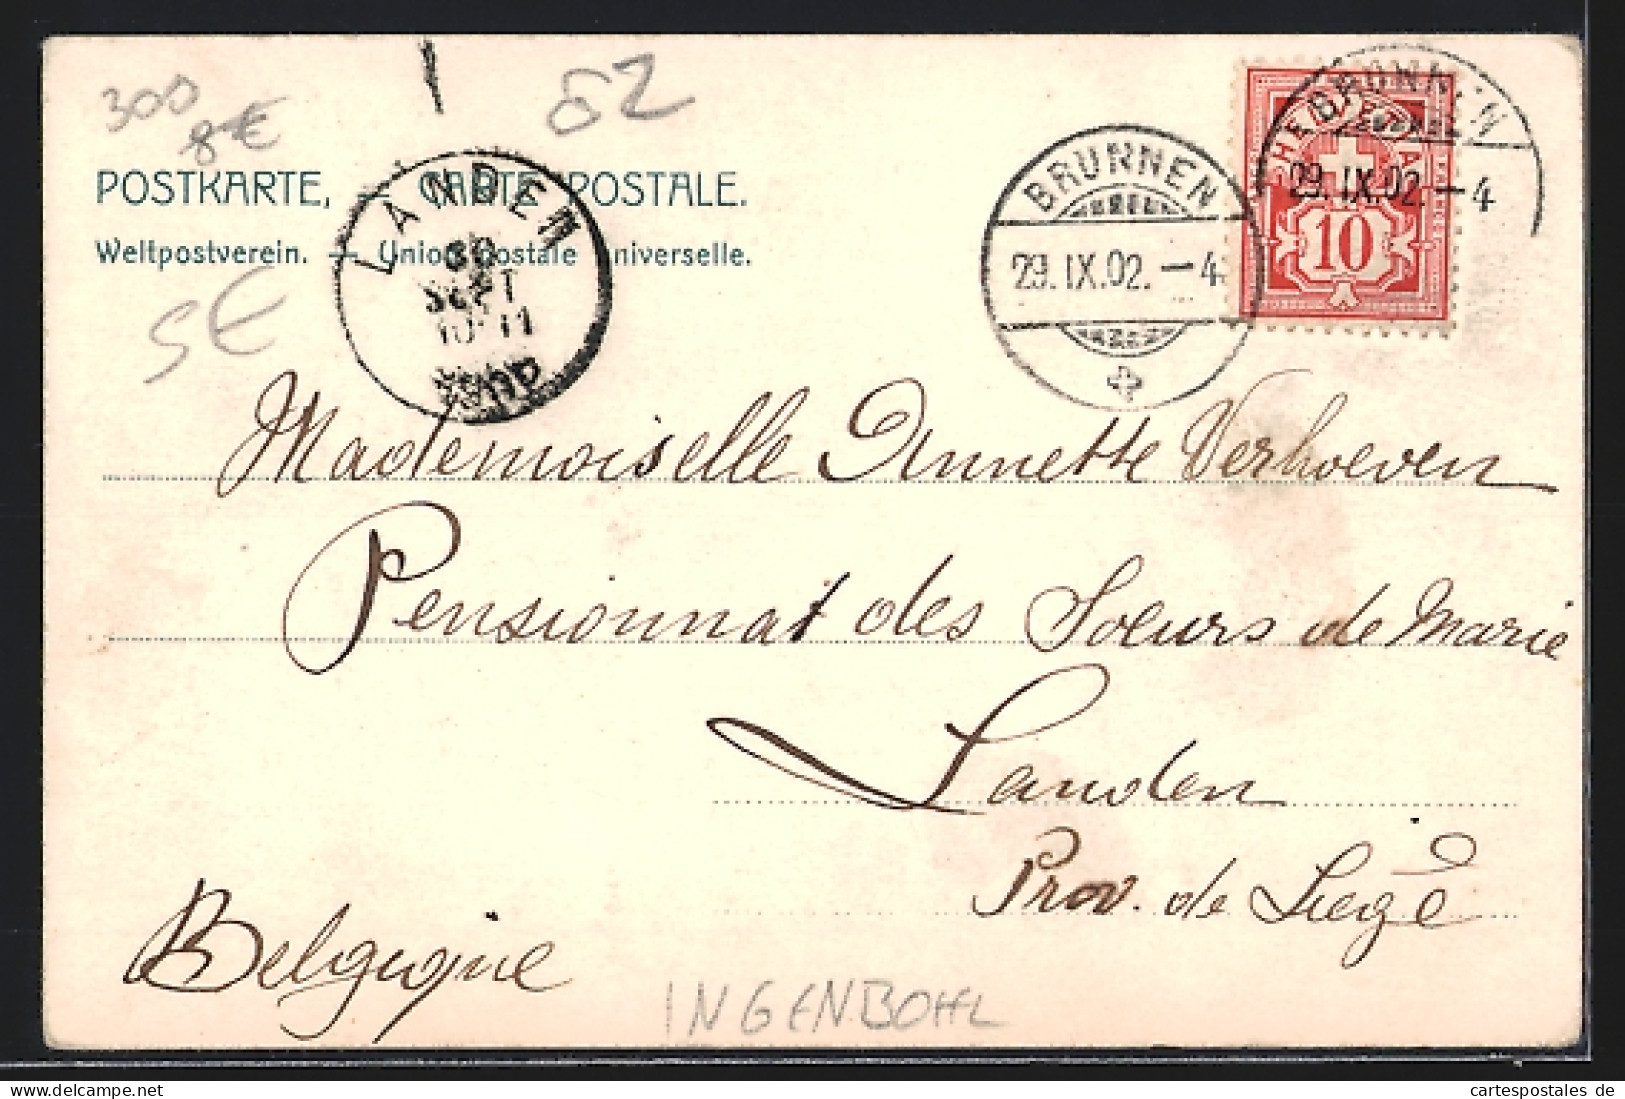 300
8€
62
POSTKARTE, CARTE POSTALE.
Weltpostverein. — Union postale universelle.
5€
LANDEN
30
SEPT
10-11
BRUNNEN
29.IX.02.-4
BRUNNEN
29.IX.02.-4
10
Mademoiselle Annette Verhoeven
Pensionnat des Soeurs de Marie
Landen
Prov. de Liége
Belgique
INGENBOHL
www.delcampe.net
cartespostales de